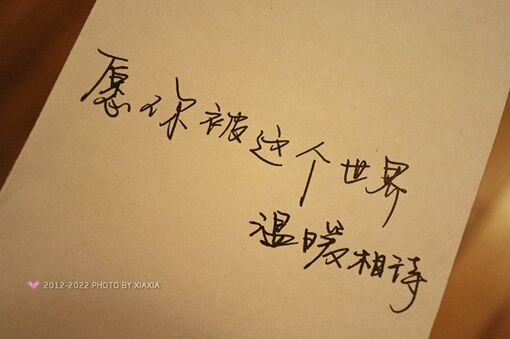 愿你被这个世界
温暖相待
2012-2022 PHOTO BY XIAXIA